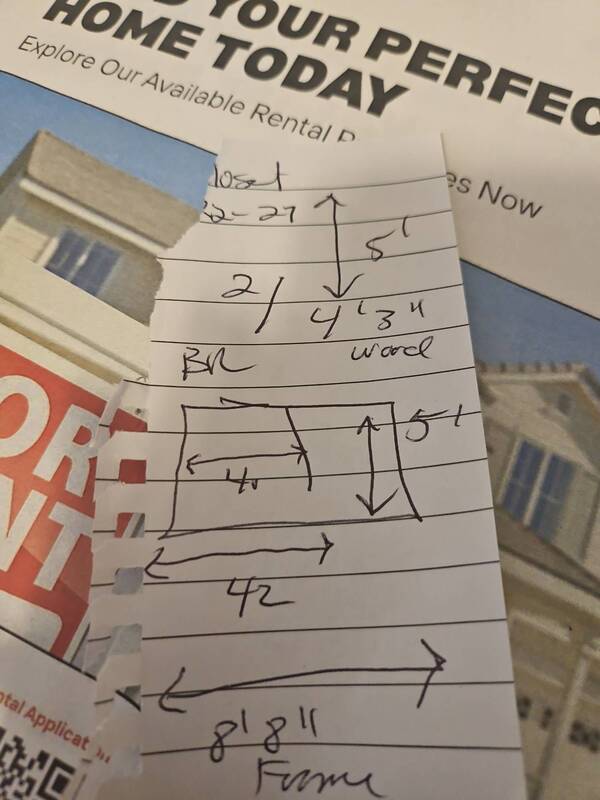 YOUR PERFEC
HOME TODAY
Explore Our Available Rental
es Now
loset
22-27
5'
2/
4'3"
BR
wood
5'
40
42
8'8"
Frame
OR
NT
ntal Applicat